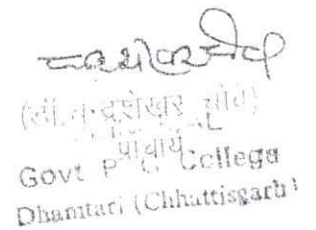 चन्द्रशेखर चौबे
(डॉ. चन्द्रशेखर चौबे)
PRINCIPAL
प्राचार्य
Govt P G College
Dhamtari (Chhattisgarh)